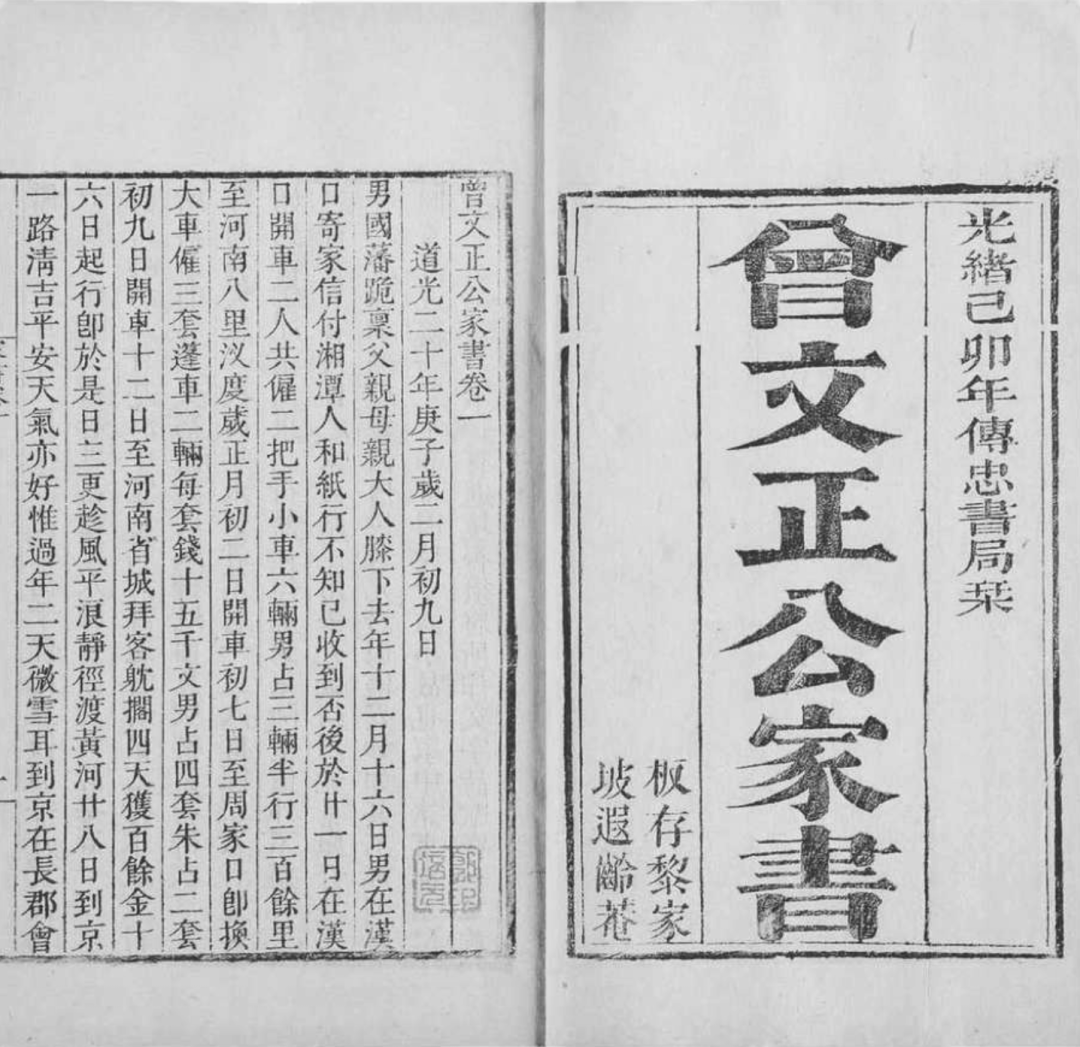 光緒己卯年傳忠書局栞
曾文正公家書
板存黎家
坡遐齡菴
曾文正公家書卷一
道光二十年庚子歲二月初九日
男國藩跪稟父親母親大人膝下去年十二月十六日男在漢
口寄家信付湘潭人和紙行不知已收到否後於廿一日在漢
口開車二人共僱二把手小車六輛男占三輛半行三百餘里
至河南八里汊度歲正月初二日開車初七日至周家口即換
大車僱三套篷車二輛每套錢十五千文男占四套朱占二套
初九日開車十二日至河南省城拜客躭擱四天獲百餘金十
六日起行卽於是日三更趁風平浪靜徑渡黃河廿八日到京
一路清吉平安天氣亦好惟過年二天微雪耳到京在長郡會